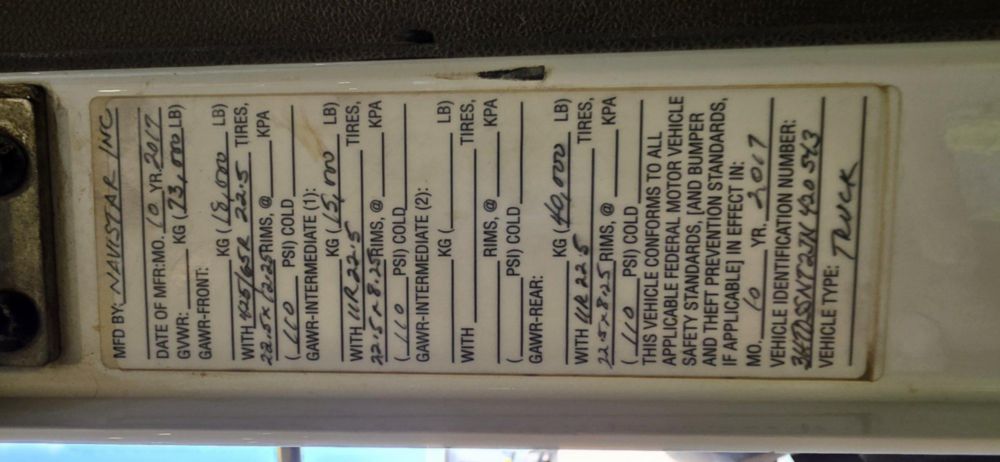 MFD BY: NAVISTAR INC
DATE OF MFR: MO. 10 YR. 2017
GVWR: KG (73,000 LB)
GAWR-FRONT:
KG (18,000 LB)
WITH 425/65R 22.5 TIRES,
22.5x12.25 RIMS, @ KPA
(110 PSI) COLD
GAWR-INTERMEDIATE (1):
KG (15,000 LB)
WITH 11R22.5 TIRES,
22.5x8.25 RIMS, @ KPA
(110 PSI) COLD
GAWR-INTERMEDIATE (2):
KG ( LB)
WITH TIRES,
RIMS, @ KPA
( PSI) COLD
GAWR-REAR:
KG (40,000 LB)
WITH 11R22.5 TIRES,
22.5x8.25 RIMS, @ KPA
(110 PSI) COLD
THIS VEHICLE CONFORMS TO ALL
APPLICABLE FEDERAL MOTOR VEHICLE
SAFETY STANDARDS, [AND BUMPER
AND THEFT PREVENTION STANDARDS,
IF APPLICABLE] IN EFFECT IN:
MO. 10 YR. 2017
VEHICLE IDENTIFICATION NUMBER:
VEHICLE TYPE: TRUCK